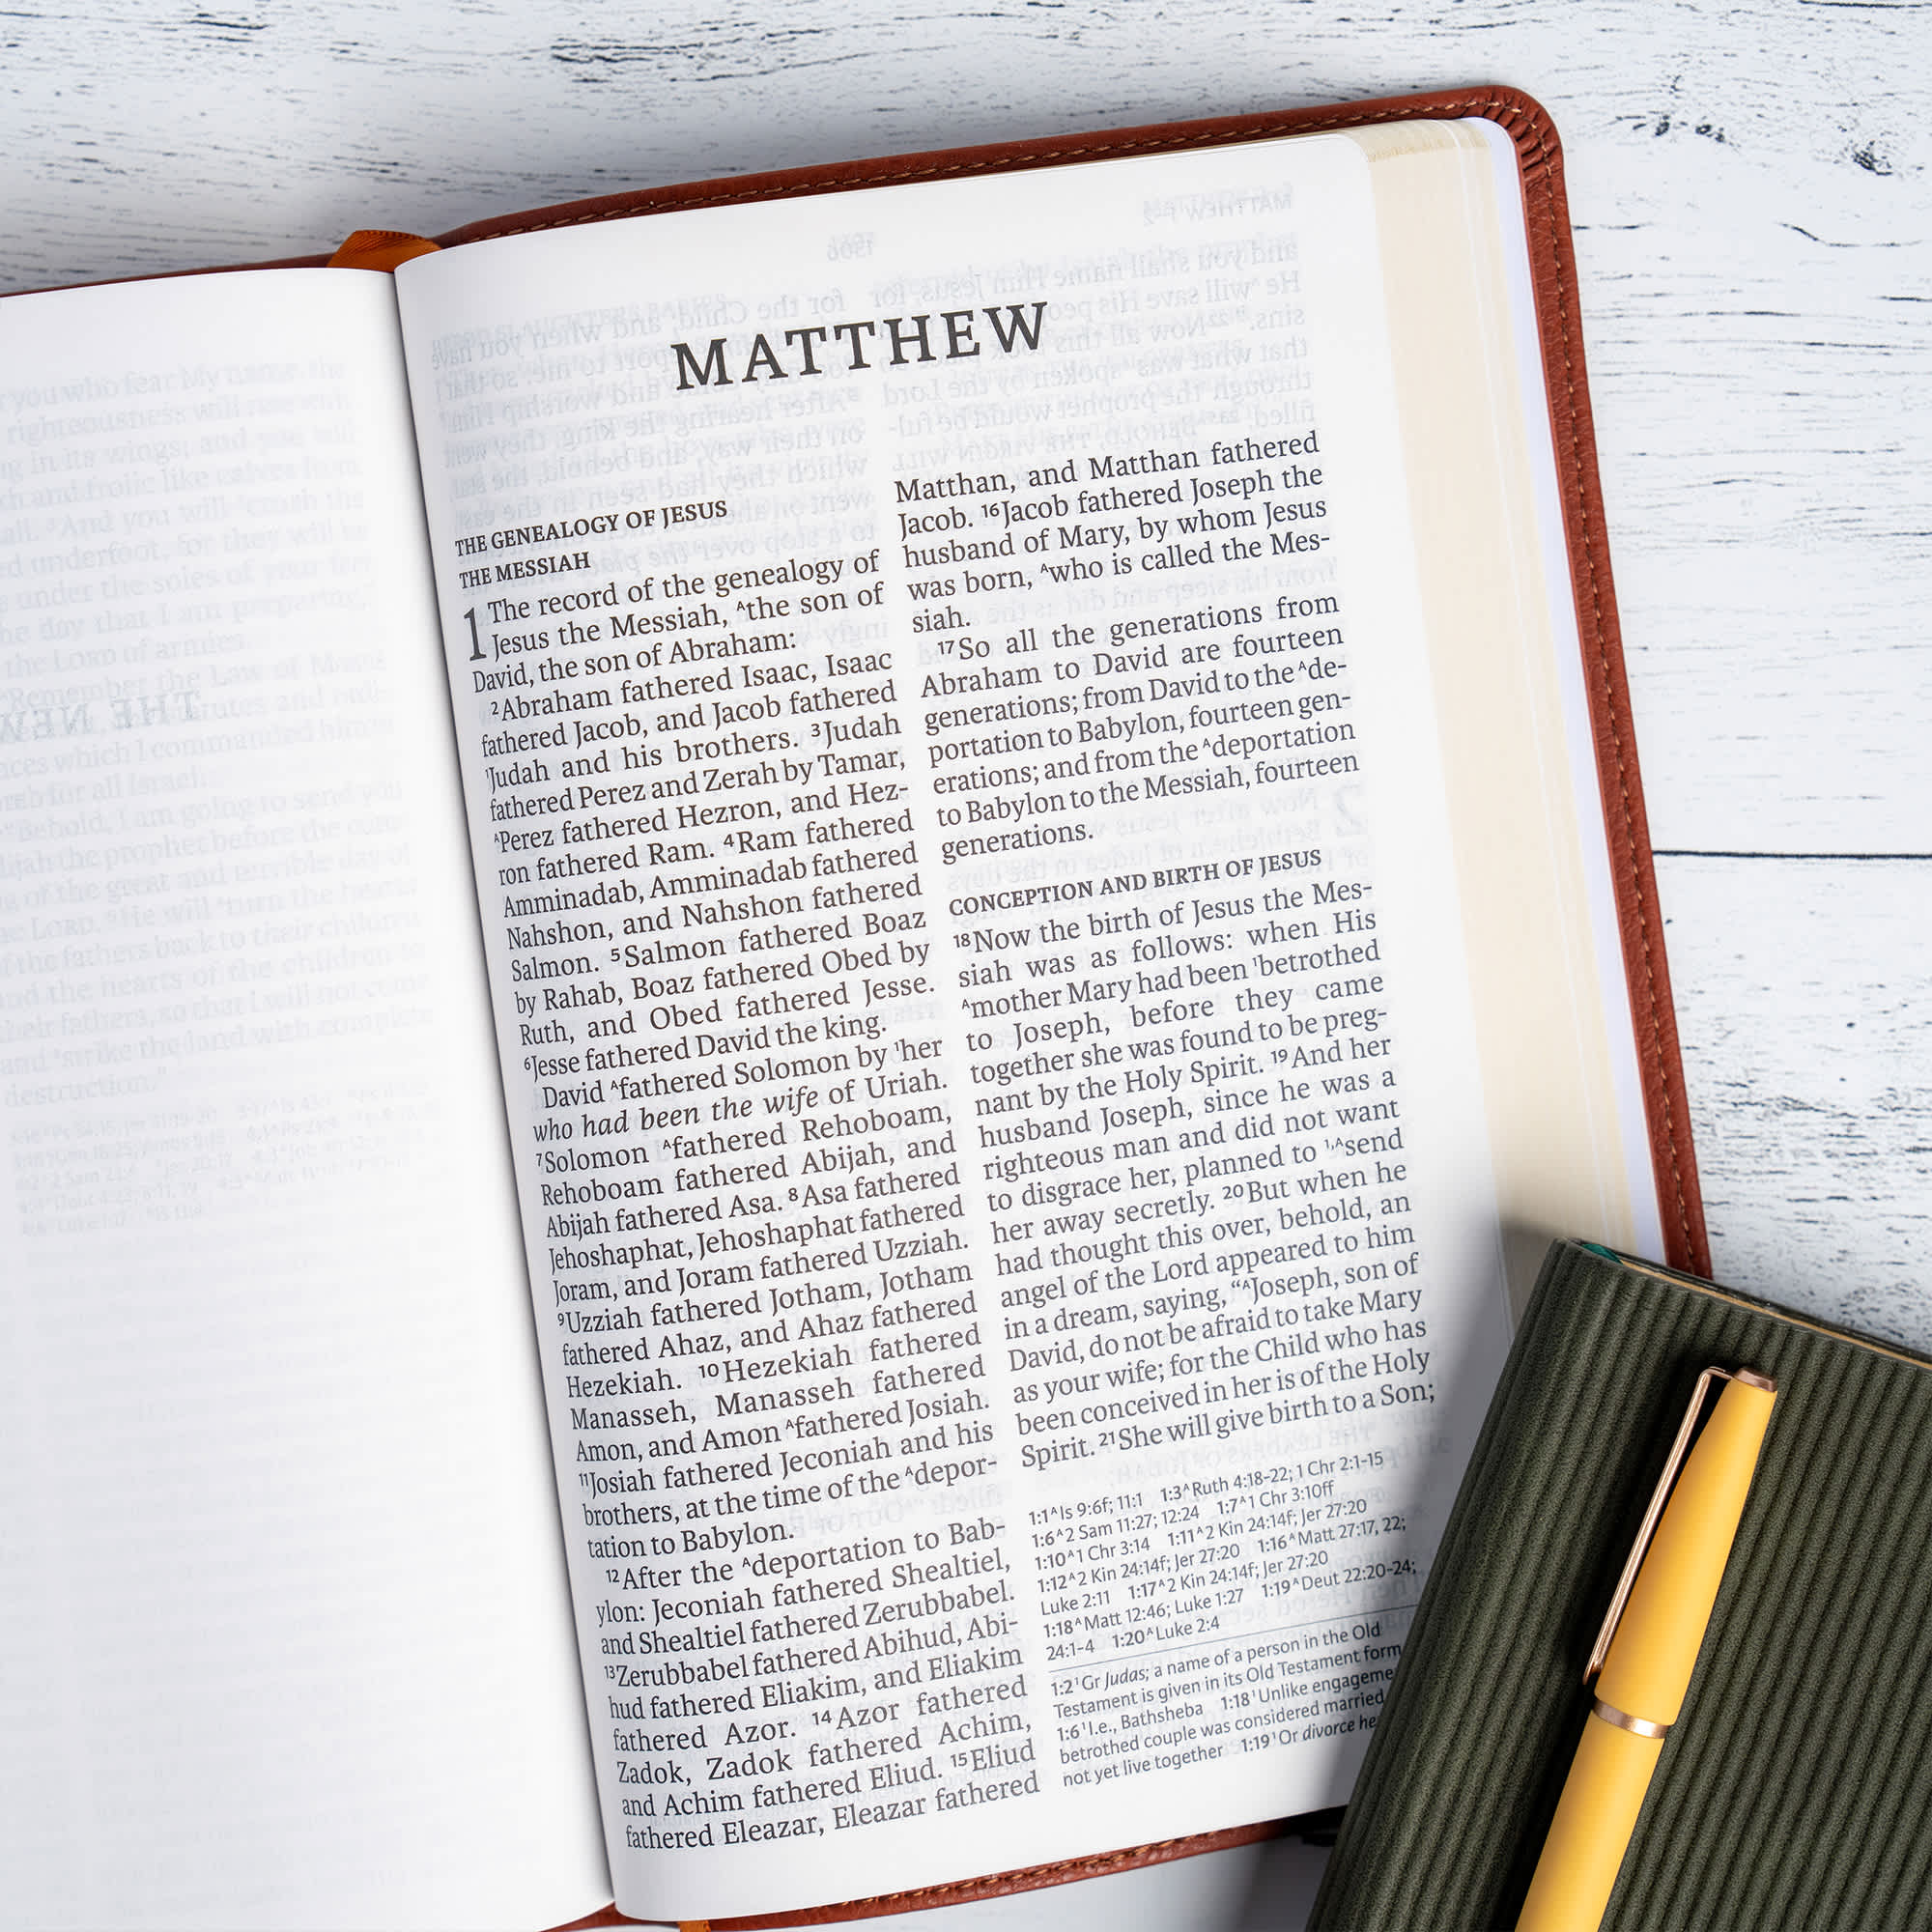 you who fear My name, the
righteousness will rise with
in its wings; and you will
and frolic like calves from
And you will crush the
underfoot, for they will be
under the soles of your feet
day that I am preparing,"
the LORD of armies.
"Remember the Law of Moses
which I commanded him
for all Israel.
"Behold, I am going to send you
the prophet before the
of the great and terrible day of
LORD. 6He will turn the hearts
the fathers back to their children
and the hearts of the children to
their fathers, so that I will not come
and strike the land with complete
destruction."
MATTHEW
THE GENEALOGY OF JESUS
THE MESSIAH
1 The record of the genealogy of
Jesus the Messiah, ᴬthe son of
David, the son of Abraham:
²Abraham fathered Isaac, Isaac
fathered Jacob, and Jacob fathered
¹Judah and his brothers. ³Judah
fathered Perez and Zerah by Tamar,
ᴬPerez fathered Hezron, and Hez-
ron fathered Ram. ⁴Ram fathered
Amminadab, Amminadab fathered
Nahshon, and Nahshon fathered
Salmon. ⁵Salmon fathered Boaz
by Rahab, Boaz fathered Obed by
Ruth, and Obed fathered Jesse.
⁶Jesse fathered David the king.
David ᴬfathered Solomon by ¹her
who had been the wife of Uriah.
⁷Solomon ᴬfathered Rehoboam,
Rehoboam fathered Abijah, and
Abijah fathered Asa. ⁸Asa fathered
Jehoshaphat, Jehoshaphat fathered
Joram, and Joram fathered Uzziah.
⁹Uzziah fathered Jotham, Jotham
fathered Ahaz, and Ahaz fathered
Hezekiah. ¹⁰Hezekiah fathered
Manasseh, Manasseh fathered
Amon, and Amon ᴬfathered Josiah.
¹¹Josiah fathered Jeconiah and his
brothers, at the time of the ᴬdepor-
tation to Babylon.
¹²After the ᴬdeportation to Bab-
ylon: Jeconiah fathered Shealtiel,
and Shealtiel fathered Zerubbabel.
¹³Zerubbabel fathered Abihud, Abi-
hud fathered Eliakim, and Eliakim
fathered Azor. ¹⁴Azor fathered
Zadok, Zadok fathered Achim,
and Achim fathered Eliud. ¹⁵Eliud
fathered Eleazar, Eleazar fathered
Matthan, and Matthan fathered
Jacob. ¹⁶Jacob fathered Joseph the
husband of Mary, by whom Jesus
was born, ᴬwho is called the Mes-
siah.
¹⁷So all the generations from
Abraham to David are fourteen
generations; from David to the ᴬde-
portation to Babylon, fourteen gen-
erations; and from the ᴬdeportation
to Babylon to the Messiah, fourteen
generations.
CONCEPTION AND BIRTH OF JESUS
¹⁸Now the birth of Jesus the Mes-
siah was as follows: when His
ᴬmother Mary had been ¹betrothed
to Joseph, before they came
together she was found to be preg-
nant by the Holy Spirit. ¹⁹And her
husband Joseph, since he was a
righteous man and did not want
to disgrace her, planned to ¹,ᴬsend
her away secretly. ²⁰But when he
had thought this over, behold, an
angel of the Lord appeared to him
in a dream, saying, “ᴬJoseph, son of
David, do not be afraid to take Mary
as your wife; for the Child who has
been conceived in her is of the Holy
Spirit. ²¹She will give birth to a Son;
1:1ᴬIs 9:6f; 11:1 1:3ᴬRuth 4:18-22; 1 Chr 2:1-15
1:6ᴬ2 Sam 11:27; 12:24 1:7ᴬ1 Chr 3:10ff
1:10ᴬ1 Chr 3:14 1:11ᴬ2 Kin 24:14f; Jer 27:20
1:12ᴬ2 Kin 24:14f; Jer 27:20 1:16ᴬMatt 27:17, 22;
Luke 2:11 1:17ᴬ2 Kin 24:14f; Jer 27:20
1:18ᴬMatt 12:46; Luke 1:27 1:19ᴬDeut 22:20-24;
24:1-4 1:20ᴬLuke 2:4
1:2¹Gr Judas; a name of a person in the Old
Testament is given in its Old Testament form
1:6¹I.e., Bathsheba 1:18¹Unlike engageme
betrothed couple was considered married
not yet live together 1:19¹Or divorce he